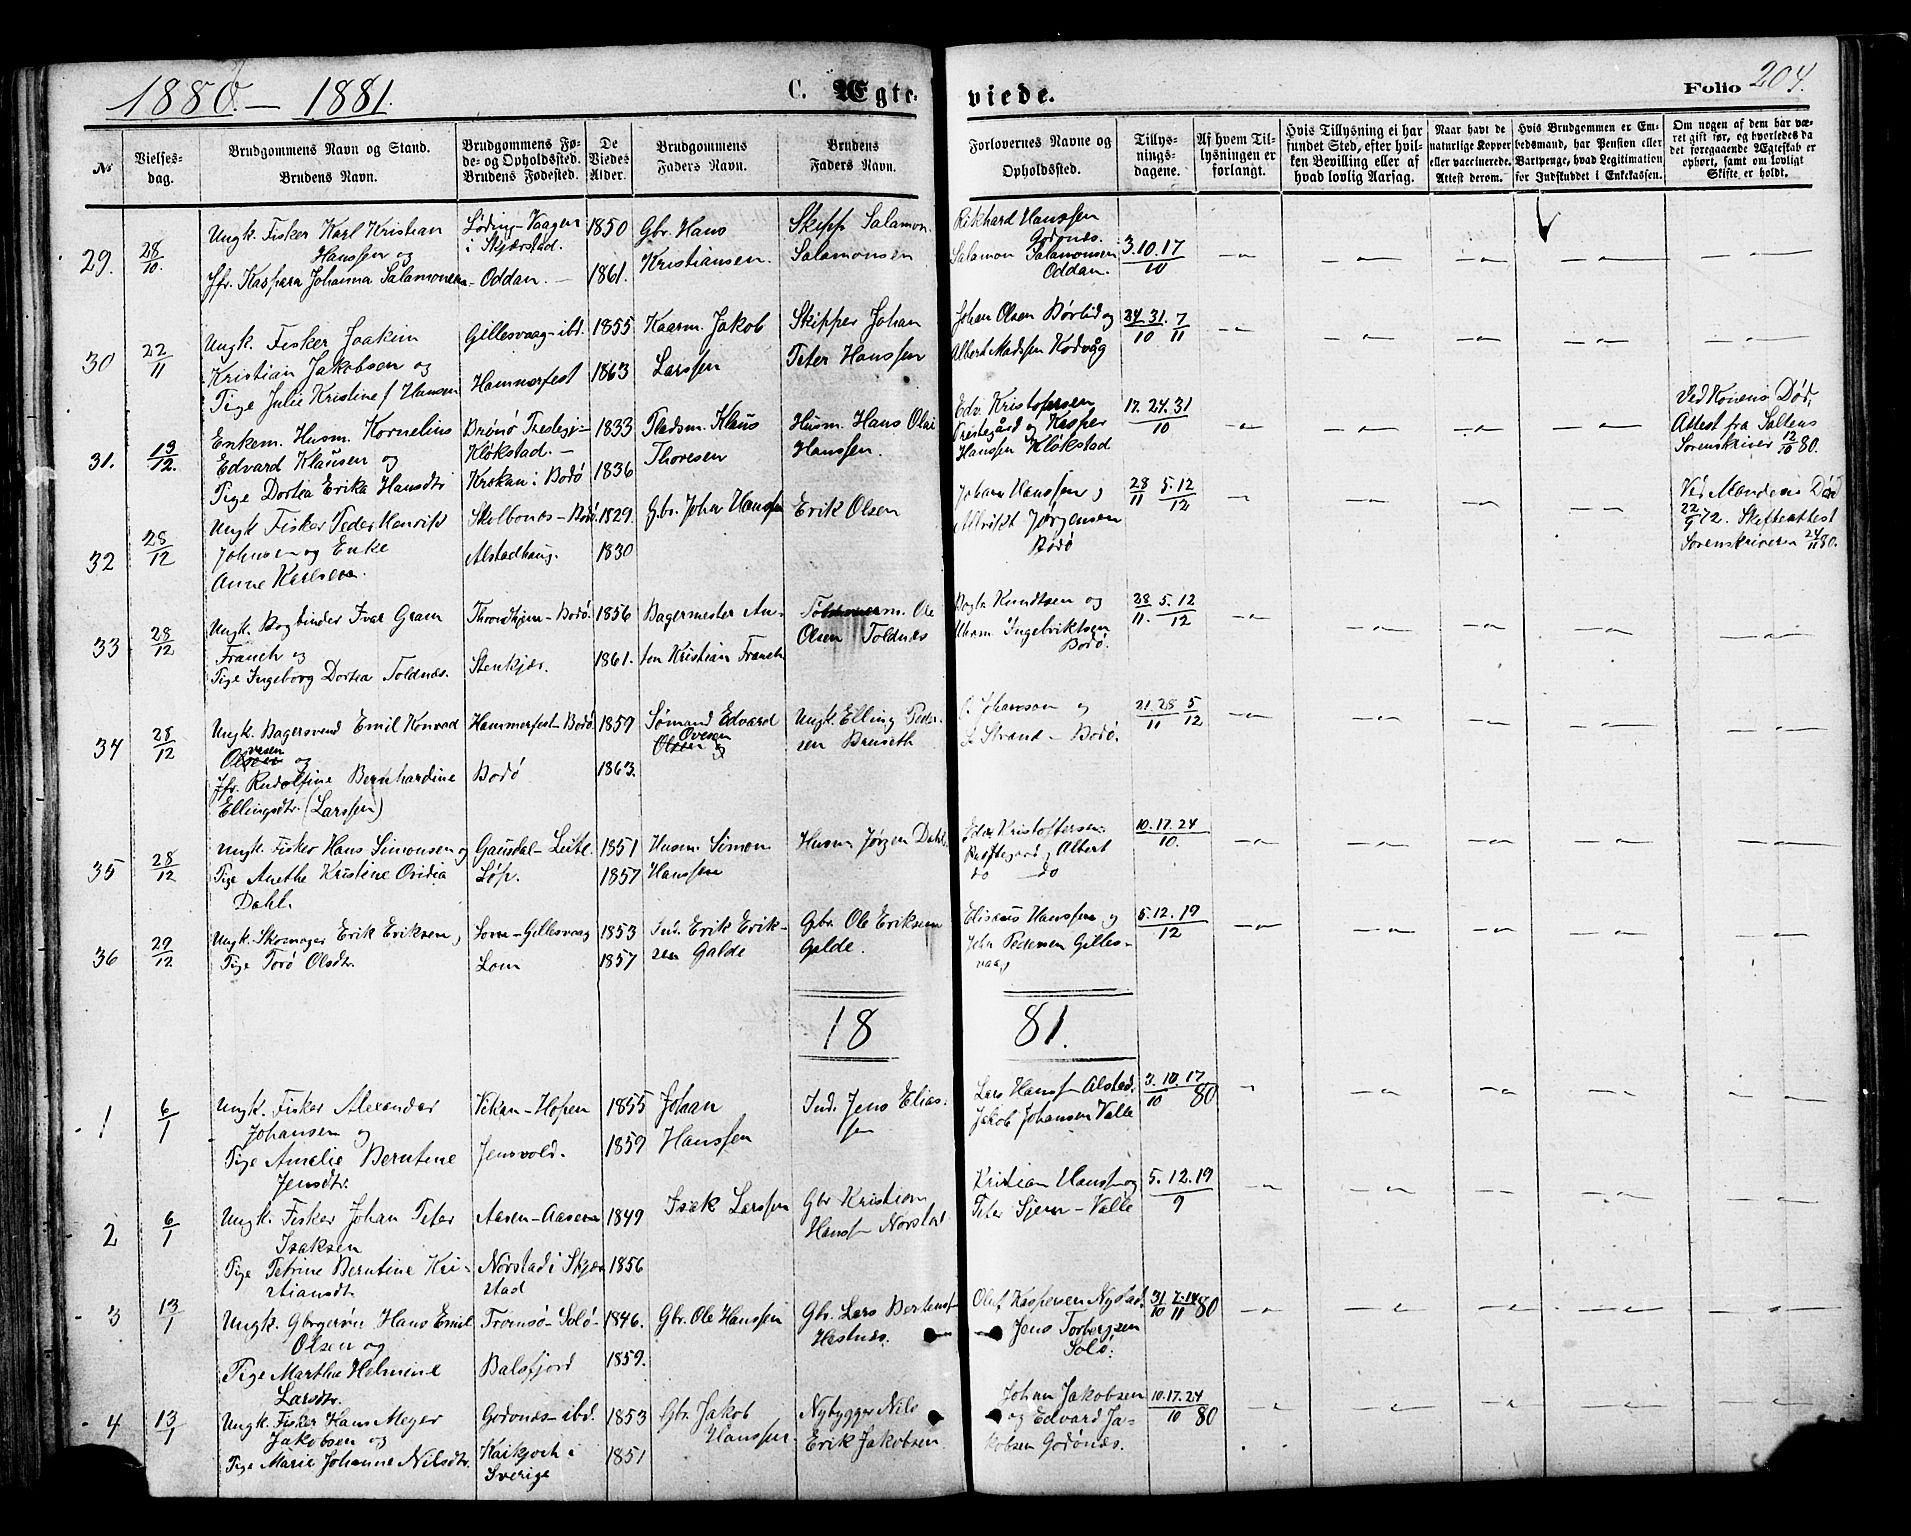 1880 – 1881.
C. Ægte-
viede.
Folio 204.
No
Vielses-
dag.
Brudgommens Navn og Stand.
Brudens Navn.
Brudgommens Fø-
de- og Opholdssted.
Brudens Fødested.
De
Viedes
Alder.
Brudgommens
Faders Navn.
Brudens
Faders Navn.
Forlovernes Navne og
Opholdssted.
Tillys-
nings-
dagene.
Af hvem Til-
lysningen er
forlangt.
Hvis Tillysning ei har
fundet Sted, efter hvil-
ken Bevilling eller af
hvad lovlig Aarsag.
Naar havt de
naturlige Kopper
eller vaccinerede.
Attest derom.
Hvis Brudgommen er Em-
bedsmand, har Pension eller
Vartpenge, hvad Legitimation
for Indskuddet i Enkekassen.
Om nogen af dem har væ-
ret gift før, og hvorledes da
det foregaaende Ægteskab er
ophørt, samt om lovligt
Skifte er holdt.
29. 28/10. Ungk. Fisker Karl Kristian
Hanssen og
Jfr. Kaspara Johanna Salamonsen
Løding–Vaagen
i Skjærstad.
Oddan.
1850
1861.
Gbr. Hans
Kristiansen.
Skipp. Salamon
Salamonsen
Rikhard Hanssen
Godønes.
Salamon Salamonsen
Oddan.
3.10.17/10
30 22/11 Ungk. Fisker Joakim
Kristian Jakobsen og
Pige Julie Kristine Hansen
Gillesvaag–ibd.
Hammerfest
1855
1863
Kaarm. Jakob
Larssen
Skipper Johan
Peter Hanssen
Johan Olsen Børlid og
Albert Madssen Kodvåg
24.31./10 7/11
31. 19/12. Enkem. Husm. Kornelius
Edvard Klausen og
Pige Dortea Erika Hansdtr
Brønø Prestegj–
Kløkstad.
Krokan i Bodø
1833
1836
Pladsm. Klaus
Thoresen
Husm. Hans Olai
Hanssen.
Edv. Kristofersen
Prestegård og Kasper
Hanssen Kløkstad
17.24.31/10
Ved Konens Død,
Attest fra Saltens
Sorenskriver 12/10 80.
32 28/12 Ungk. Fisker Peder Henrik
Johnsen og Enke
Anne Karlsen.
Skolbones–Bodø.
Alstadhaug.
1829.
1830
Gbr. Johan Hanssen
Erik Olsen
Johan Hanssen og
Jørgensen
Bodø
28/11 5.12/12
Ved Mandens Død
22/9 72. Skifteattest
Sorenskriveren 24/11 80.
33 28/12 Ungk. Bogbinder Ivar Gram
Franch og
Pige Ingeborg Dortea Toldnæs.
Throndhjem–Bodø.
Stenkjær.
1856
1861.
Bagermester An-
ton Kristian Franch
Ole
Olsen Toldnæs
Knudtsen og
Ingebriktsen
Bodø.
28/11. 5.12/12
34 28/12 Ungk. Bagersvend Emil Konrad
Olsen vesen og
Jfr. Rudolfine Bernhardine
Ellingsdtr. (Larssen)
Hammerfest–Bodø
Bodø
1857
1863.
Sømand Edvard
Ovesen
Olsen
Ungk. Elling Peder-
sen Bruseth
Johanson og
Strand – Bodø.
21.28/11 5/12
35 28/12 Ungk. Fisker Hans Simonsen og
Pige Anethe Kristine Ovidia
Dahl.
Gausdal–
Løp.
1851
1857
Husm. Simon
Hanssen
Husm Jørgen Dahl.
Kristoffersen
Albert
do do
10.17.24/10.
36 29/12 Ungk. Skomager Erik Eriksen,
Pige Torø Olsdtr.
Lom–Gillesvaag
Lom
1853
1857
Ind. Erik Erik-
sen Galde
Gbr. Ole Eriksen
Galde.
Eliseus Hanssen og
John Pedersen Gilles-
vaag
5.12.19/12
18 81.
1 6/1 Ungk. Fisker Alexander
Johansen og
Pige Amelie Berntine
Jensdtr.
Vikan–Hopen
Jensvold.
1855
1859
Johan
Hanssen
Ind. Jens Elias-
sen
Lars Hanss– Alstad.
Jakob Johansen Valle
3.10.17/10 80
2 6/1 Ungk. Fisker Johan Peter
Isaksen
Pige Petrine Berntine Kri-
stiansdtr.
Aasen–Aasen
Norstad i Skjær-
stad
1849
1856
Isak Larssen
Gbr Kristian
Hanss– Norstad
Kristian Hanss– og
Peter Sjem–Valle
5.12.19/9
3 13/1 Ungk. Gbrgersøn Hans Emil
Olsen og
Pige Martha Helmine
Larsdtr.
Tromsø–Solø–
Balsfjord
1846.
1859.
Gbr. Ole Hanssen
Gbr. Lars Bertens–
Hestnes.
Oluf Kaspersen Nystad.
Jens Torbergsen
Solø.
31/10 7.14/11 80
4 13/1 Ungk. Fisker Hans Meyer
Jakobsen og
Pige Marie Johanne Nilsdtr.
Godønes–ibd.
Kaikjoch i
Sverige
1853
1851
Gbr. Jakob
Hanssen.
Nybygger Nils
Erik Jakobsen
Johan Jakobsen
og Edvard Ja-
kobsen Godønes.
10.17.24/10 80